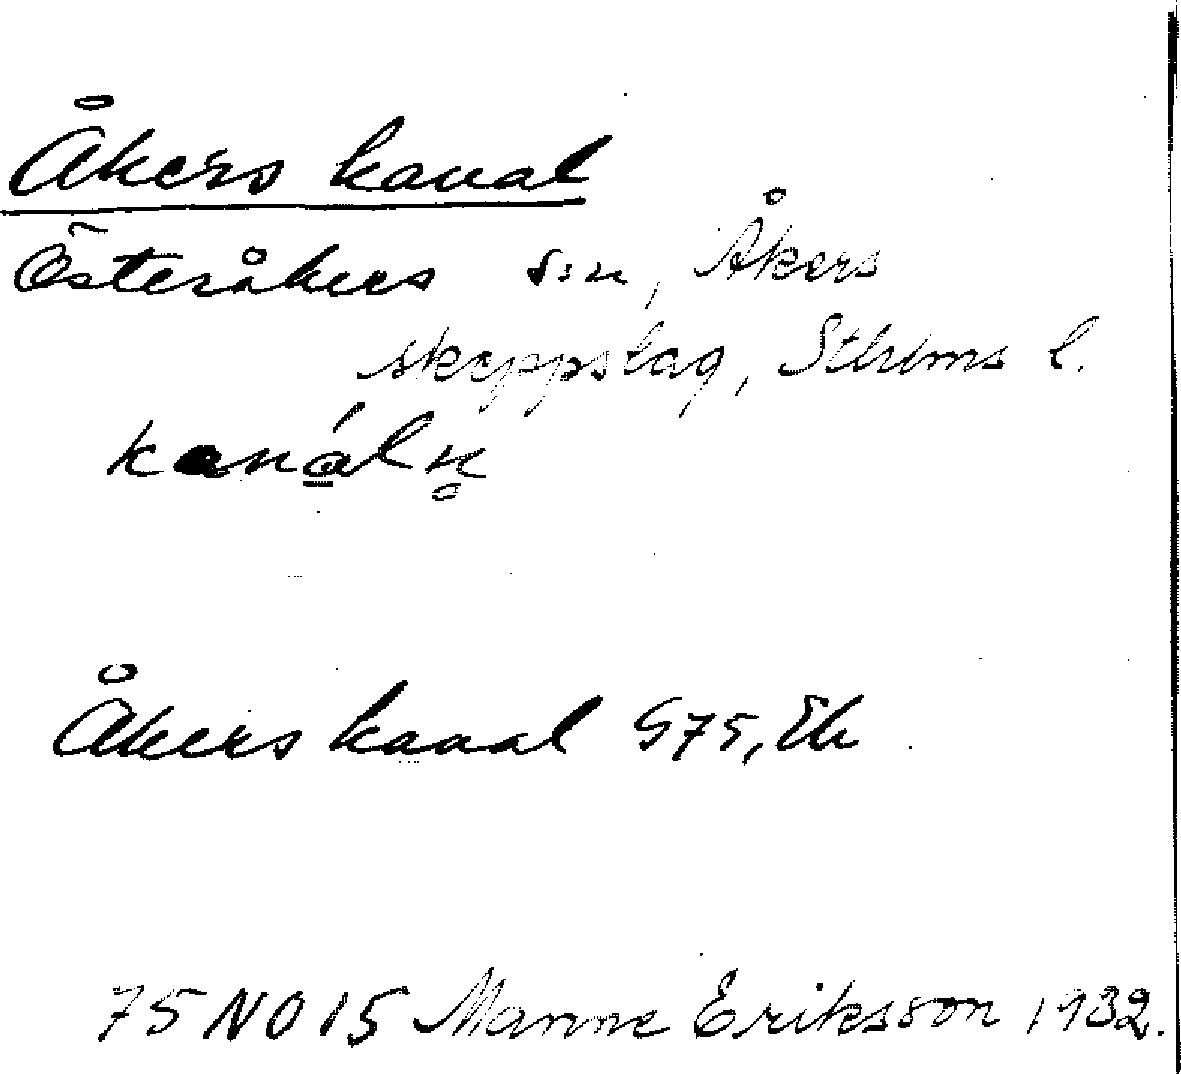 Åkers kanal
Österåkers s:n, Åkers
skeppslag, Sthlms l.
kanáln̥
Åkers kanal G75, Ek
75 NO 15 Manne Eriksson 1932.